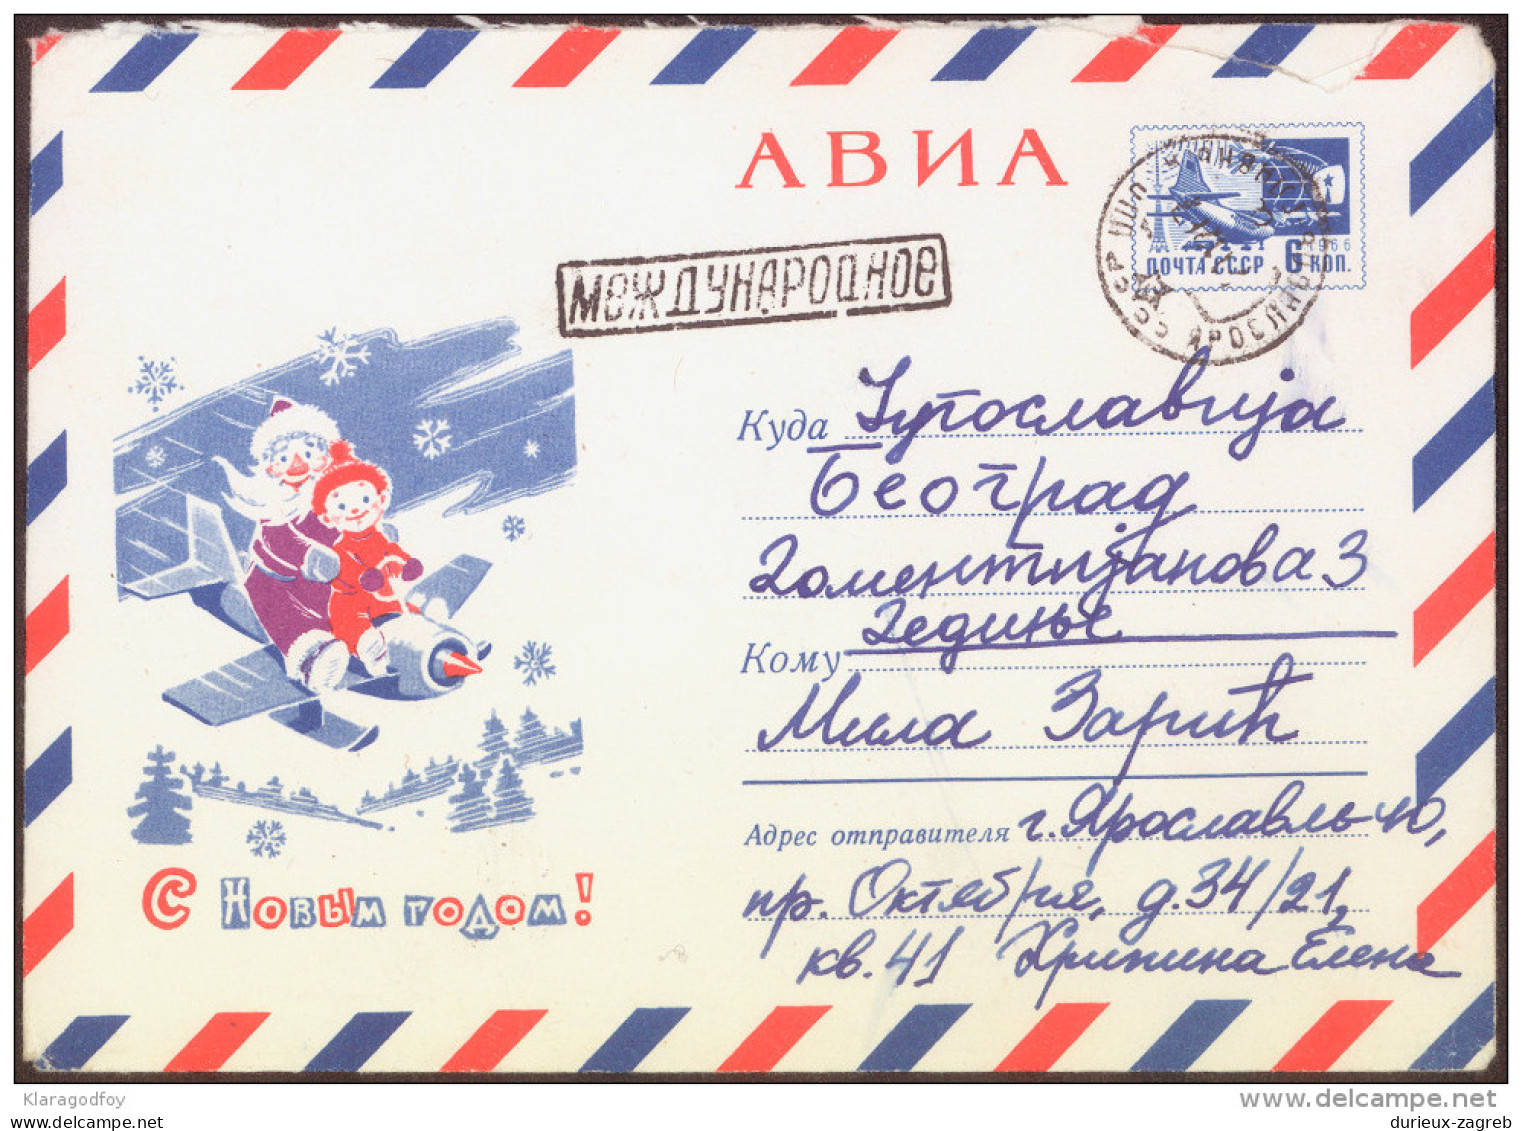 АВИА
1966
ПОЧТА СССР 6 КОП.
СССР ЯРОСЛАВЛЬ
МЕЖДУНАРОДНОЕ
Куда Југославија
Београд
Толентијанова 3
Дедиње
Кому
Мила Зарић
Адрес отправителя г. Ярославль-40,
пр. Октября, д. 34/21,
кв. 41 Хрипина Елена
С Новым годом!
Klaragodfoy
www.delcampe.net
durieux-zagreb